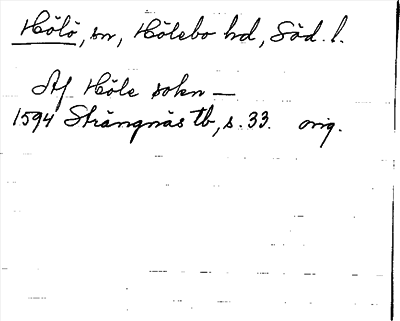 Hölö, sn, Hölebo hd, Söd. l.
Af Höle sokn —
1594 Strängnäs tb, s. 33. orig.